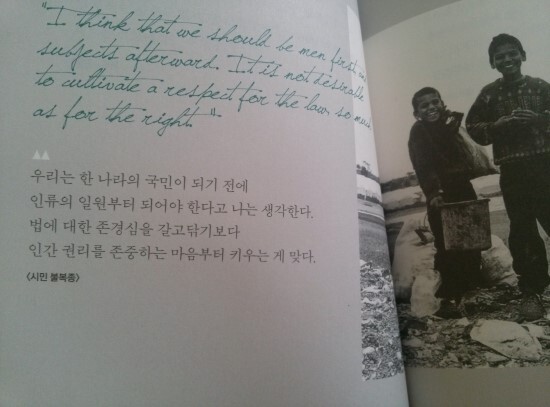 "I think that we should be men first, and
subjects afterward. It is not desirable
to cultivate a respect for the law, so much
as for the right."
우리는 한 나라의 국민이 되기 전에
인류의 일원부터 되어야 한다고 나는 생각한다.
법에 대한 존경심을 갈고닦기보다
인간 권리를 존중하는 마음부터 키우는 게 맞다.
<시민 불복종>